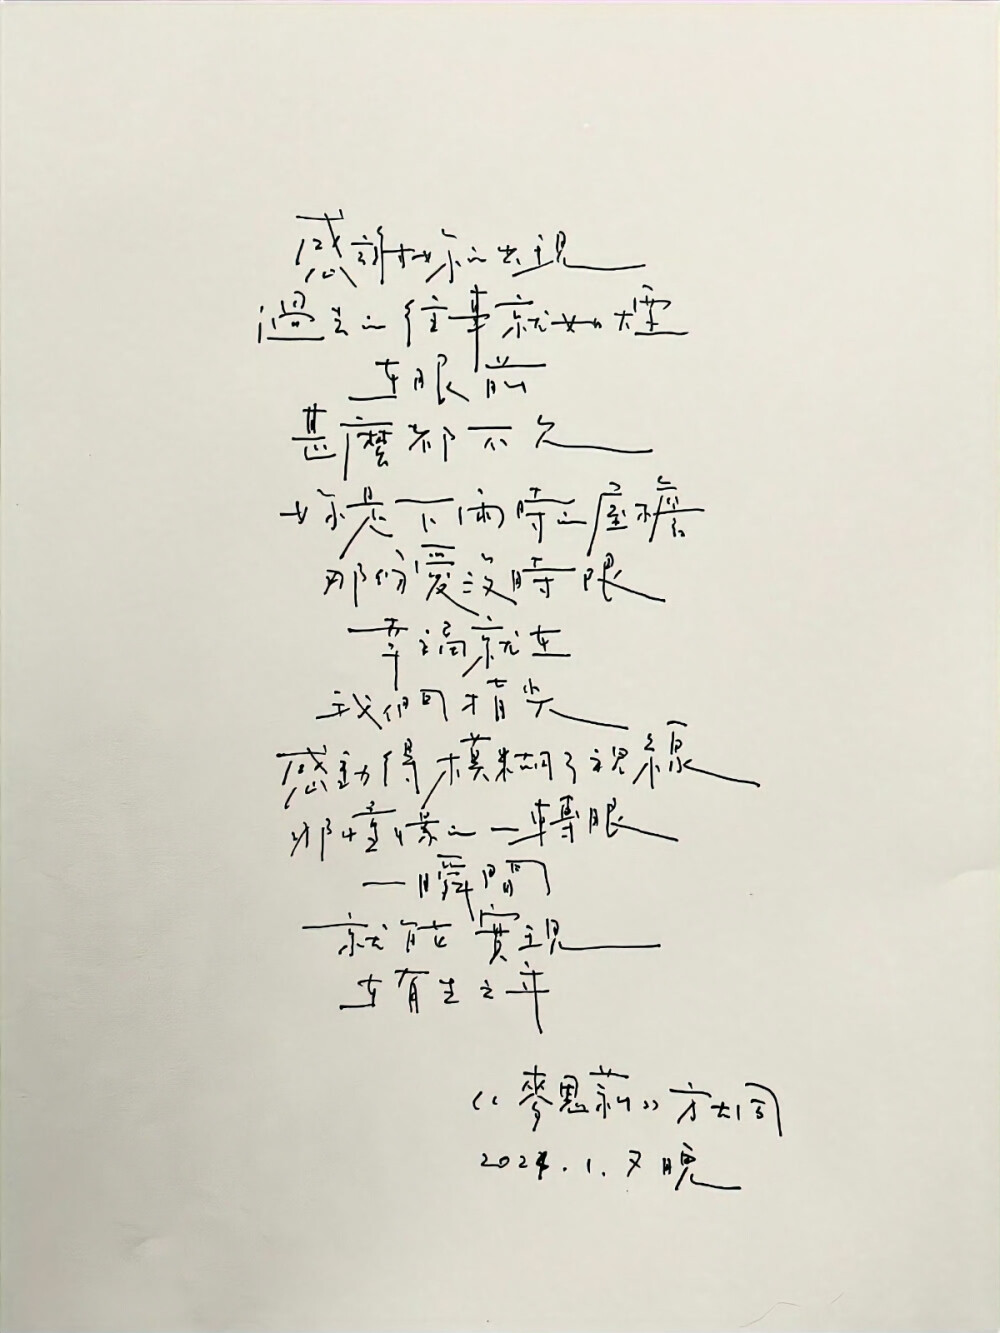 感謝妳的出現
過去的往事就如煙
在眼前
甚麼都不欠
妳是下雨時的屋檐
那份愛沒時限
幸福就在
我們指尖
感動得模糊了視線
那憧憬的一轉眼
一瞬間
就能實現
在有生之年
《麥恩莉》方大同
2024.1.7晚